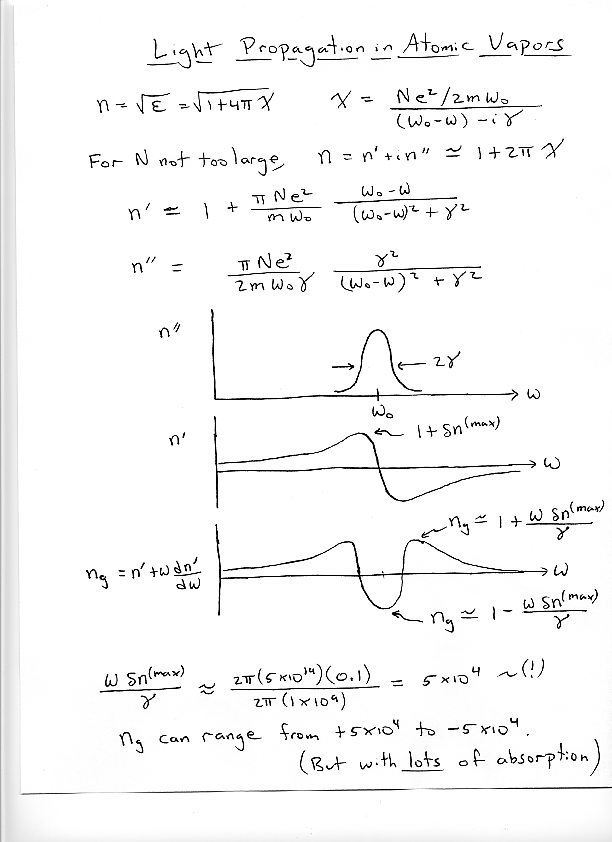 Light Propagation in Atomic Vapors
n = √ε = √1+4πχ χ = Ne²/2mω₀ / (ω₀-ω) - iγ
For N not too large, n = n' + in" ≃ 1+2π χ
n' ≃ 1 + πNe²/mω₀ ω₀-ω/(ω₀-ω)² + γ²
n" = πNe²/2mω₀γ γ²/(ω₀-ω)² + γ²
n"
→ ← 2γ
ω
ω₀
n'
1 + δn^(max)
ω
n_g ≃ 1 + ω δn^(max)/γ
n_g = n' + ω dn'/dω
ω
n_g ≃ 1 - ω δn^(max)/γ
ω δn^(max)/γ ≈ 2π(5×10¹⁴)(0.1)/2π(1×10⁹) = 5×10⁴ ~(!)
n_g can range from +5×10⁴ to -5×10⁴.
(But with lots of absorption)